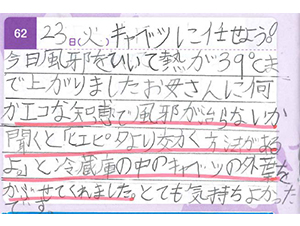 62
23日(火)キャベツに任せよう!
今日風邪をひいて熱が39℃ま
で上がりましたお母さんに何
かエコな知恵で風邪が治らないか
聞くと「ピエピタより 方法がある
よ」と冷蔵庫の中のキャベツの外葉を
かぶせてくれました。とても気持ちよかった
です。